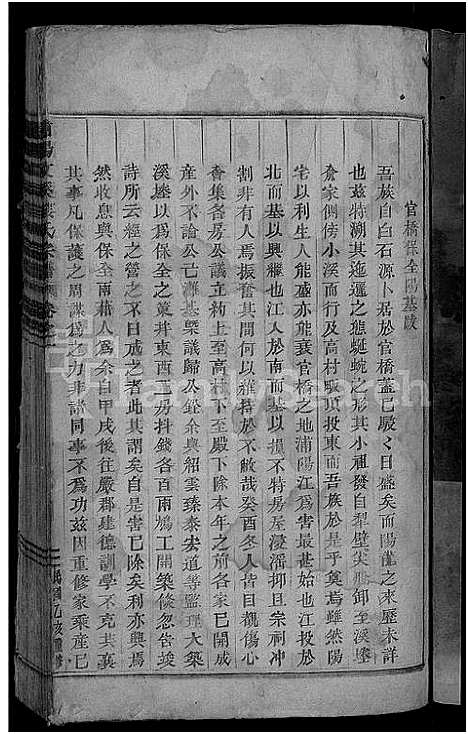 官橋保全陽基䟦
吾族自白石源卜居於官橋蓋已駸々日盛矣而陽龍之來歷未詳
也茲特溯其迤邐之態蜒蜿之形其小祖發自犁壁尖卸至溪塍
俞家側傍小溪而行及高村驟頂投東而吾族於是乎奠焉雖然陽
宅以利生人能盛亦能衰官橋之地浦陽江爲害最甚始也江投於
北而基以興繼也江入於南而基以損不特房屋浸潘抑且宗祠冲
割非有人焉振奮其間何以維持於不敝哉癸酉冬人皆目覩傷心
會集各房公議立約上至高橋下至殿下除本年之前各家已開成
產外不論公占灘基槩議歸公銓余與紹雲臻泰宏道等監理大築
溪塍以爲保全之策幷東西二房抖錢各百兩鳩工開築倏忽告竣
詩所云經之營之不日成之者此其謂矣自是害已除矣利亦興焉
然收息與保全兩藉人爲余自甲戌後往嚴郡建德訓學不克共襄
其事凡保護之周謀爲之力非諸同事不爲功茲因重修家乘產已
民國乙亥重修
FamilySearch